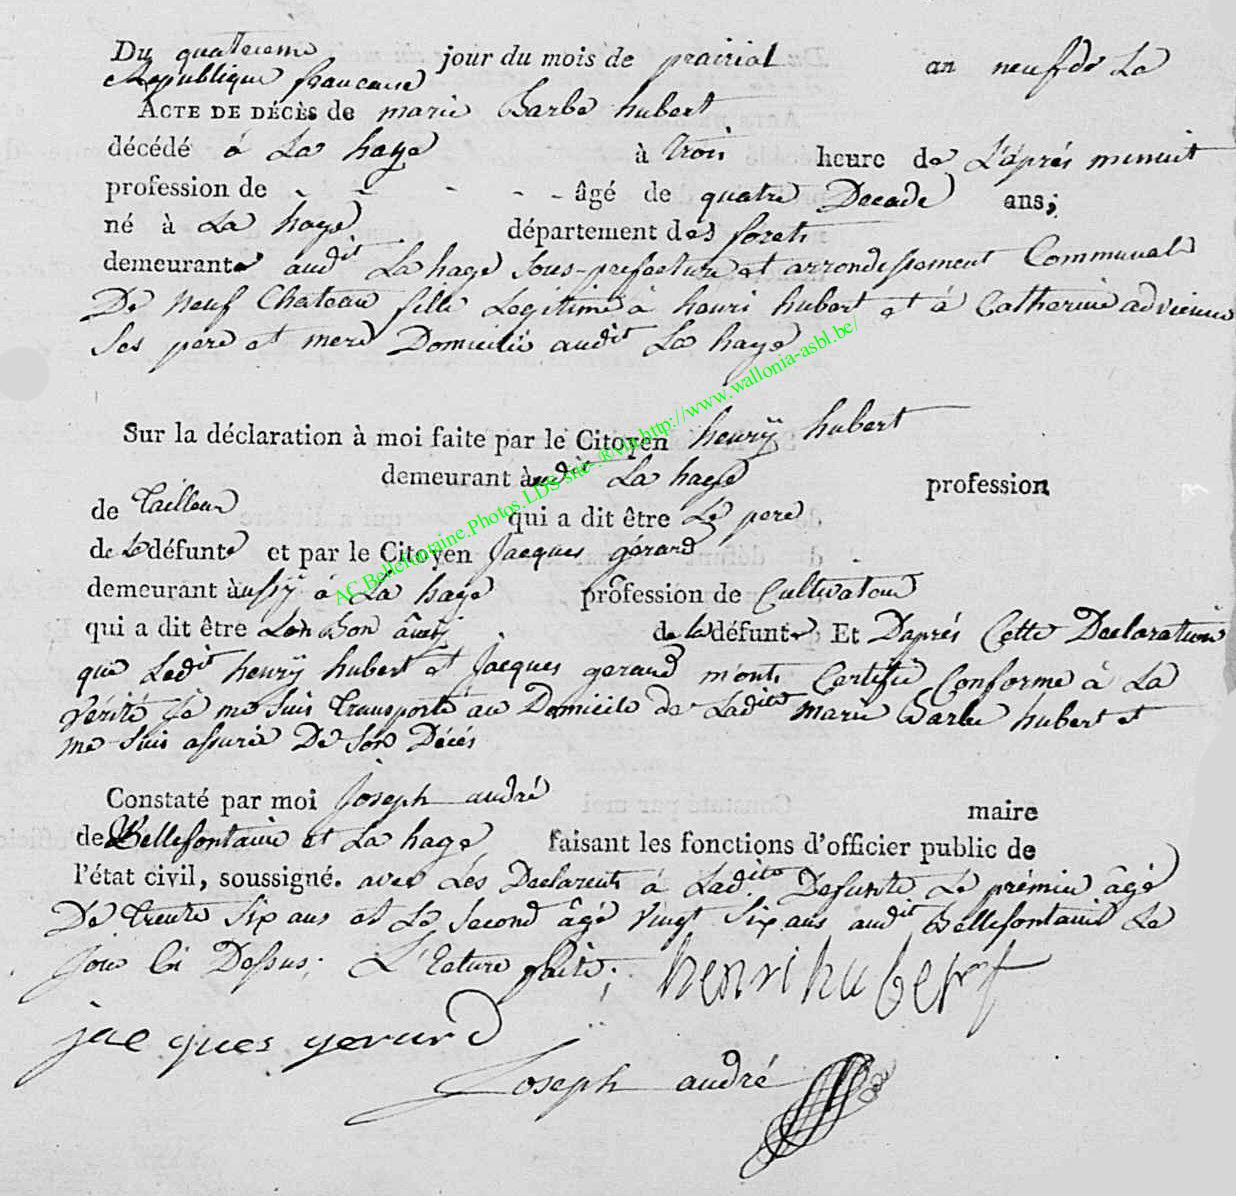 Du quatrieme jour du mois de prairial an neuf de La
République francaise
ACTE DE DÉCÈS de marie Barbe hubert
décédé á La haye à trois heure de L'aprés minuit
profession de - - - - - âgé de quatre Decade ans;
né à La haye département des forets
demeurante audit La haye sous-prefecture et arrondissement Communal
De Neuf Chateau fille Legitime à henri hubert et á Catherine advienne
Ses pere et mere Domicilié audit La haye
Sur la déclaration à moi faite par le Citoyen henrÿ hubert
demeurant àudit La haye profession
de tailleur qui a dit être Le pere
de La défunte et par le Citoyen Jacques gérard
demeurant àussÿ á La haye profession de Cultivateur
qui a dit être son Bon de la défunte Et Daprés Cette Declaration
que Ledit henrÿ hubert et Jacques gerard m'onts Certifié Conforme á La
Vérité Je me suis transporté au Domicile de Ladite marie Barbe hubert et
me suis assuré De son Décés
Constaté par moi Joseph andré maire
de Bellefontaine et La haye faisant les fonctions d'officier public de
l'état civil, soussigné. avec Lés Declarents á Ladite Defunte Le prémier âgé
De trente six ans et Le second âgé vingt six ans audit Bellefontaine Le
jour Ci Dessus; L'Ecture faite; henri hubert
jacques gerard
Joseph andré
AC.Bellefontaine.Photos.LDS site- ®via http://www.wallonia-asbl.be/